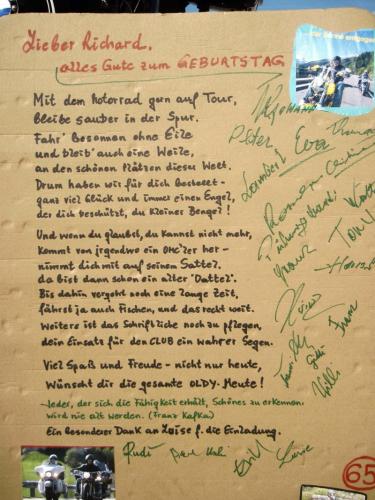 Lieber Richard,
alles Gute zum GEBURTSTAG
Mit dem Motorrad gern auf Tour,
bleibe sauber in der Spur.
Fahr' besonnen ohne Eile
und bleib' auch eine Weile,
an den schönen Plätzen dieser Welt.
Drum haben wir für dich bestellt -
ganz viel Glück und immer einen Engel,
der dich beschützt, du kleiner Bengel!
Und wenn du glaubst, du kannst nicht mehr,
kommt von irgendwo ein OMC'ler her -
nimmt dich mit auf seinem Sattel.
da bist dann schon ein alter "Dattel".
Bis dahin vergeht noch eine lange Zeit,
fährst ja auch Fischen, und das recht weit.
Weiters ist das Schriftliche noch zu pflegen,
dein Einsatz für den CLUB ein wahrer Segen.
Viel Spaß und Freude - nicht nur heute,
Wünscht dir die gesamte OLDY-Meute!
Jeder, der sich die Fähigkeit erhält, Schönes zu erkennen,
wird nie alt werden. (Franz Kafka)
Ein besonderer Dank an Loise f. die Einladung.
Johanna
Peter
Eva
Franz
Toni
Horst
Franz
Willi
Rudi
Luise
65